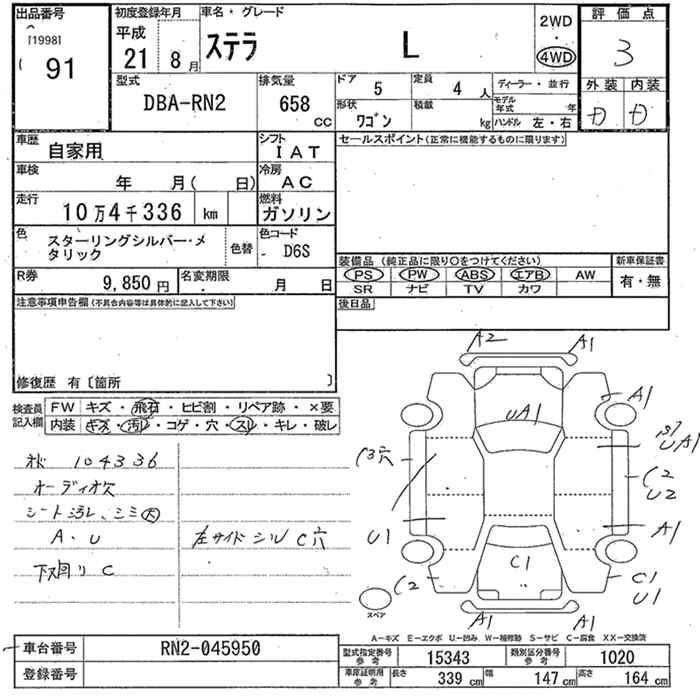 出品番号
[1998]
91
初度登録年月
平成
21 8月
車名・グレード
ステラ L
2WD
・
4WD
評価点
3
外装 内装
D D
型式
DBA-RN2
排気量
658 cc
ドア 5
定員 4 人
ディーラー・並行
形状 ワゴン
積載 kg
モデル年式 年
ハンドル 左・右
車歴
自家用
シフト
IAT
セールスポイント(正常に機能するものに限ります)
車検
年 月( 日)
冷房
AC
走行
10万4千336 km
燃料
ガソリン
色
スターリングシルバー・メタリック
色替
色コード
D6S
装備品(純正品に限り○をつけてください)
新車保証書
PS PW ABS エアB AW
SR ナビ TV カワ
有・無
R券
9,850円
名変期限
月 日
後日品
注意事項申告欄(不具合内容等は具体的に記入して下さい)
修復歴 有〔箇所 〕
検査員記入欄
FW キズ・飛石・ヒビ割・リペア跡・×要
内装 キズ・汚レ・コゲ・穴・スレ・キレ・破レ
104336
オーディオ欠
シート汚レ、シミ大
A・U
左サイドシル C穴
下廻り C
A2 A1
UA1
A1
UA1
C3穴
C2
U2
U1
A1
C2
C1
C1
U1
A1 A1
スペア
A-キズ E-エクボ U-凹み W-補修跡 S-サビ C-腐食 XX-交換済
車台番号
RN2-045950
登録番号
型式指定番号 参考
15343
類別区分番号 参考
1020
車庫証明用 参考
長さ 339 cm
幅 147 cm
高さ 164 cm